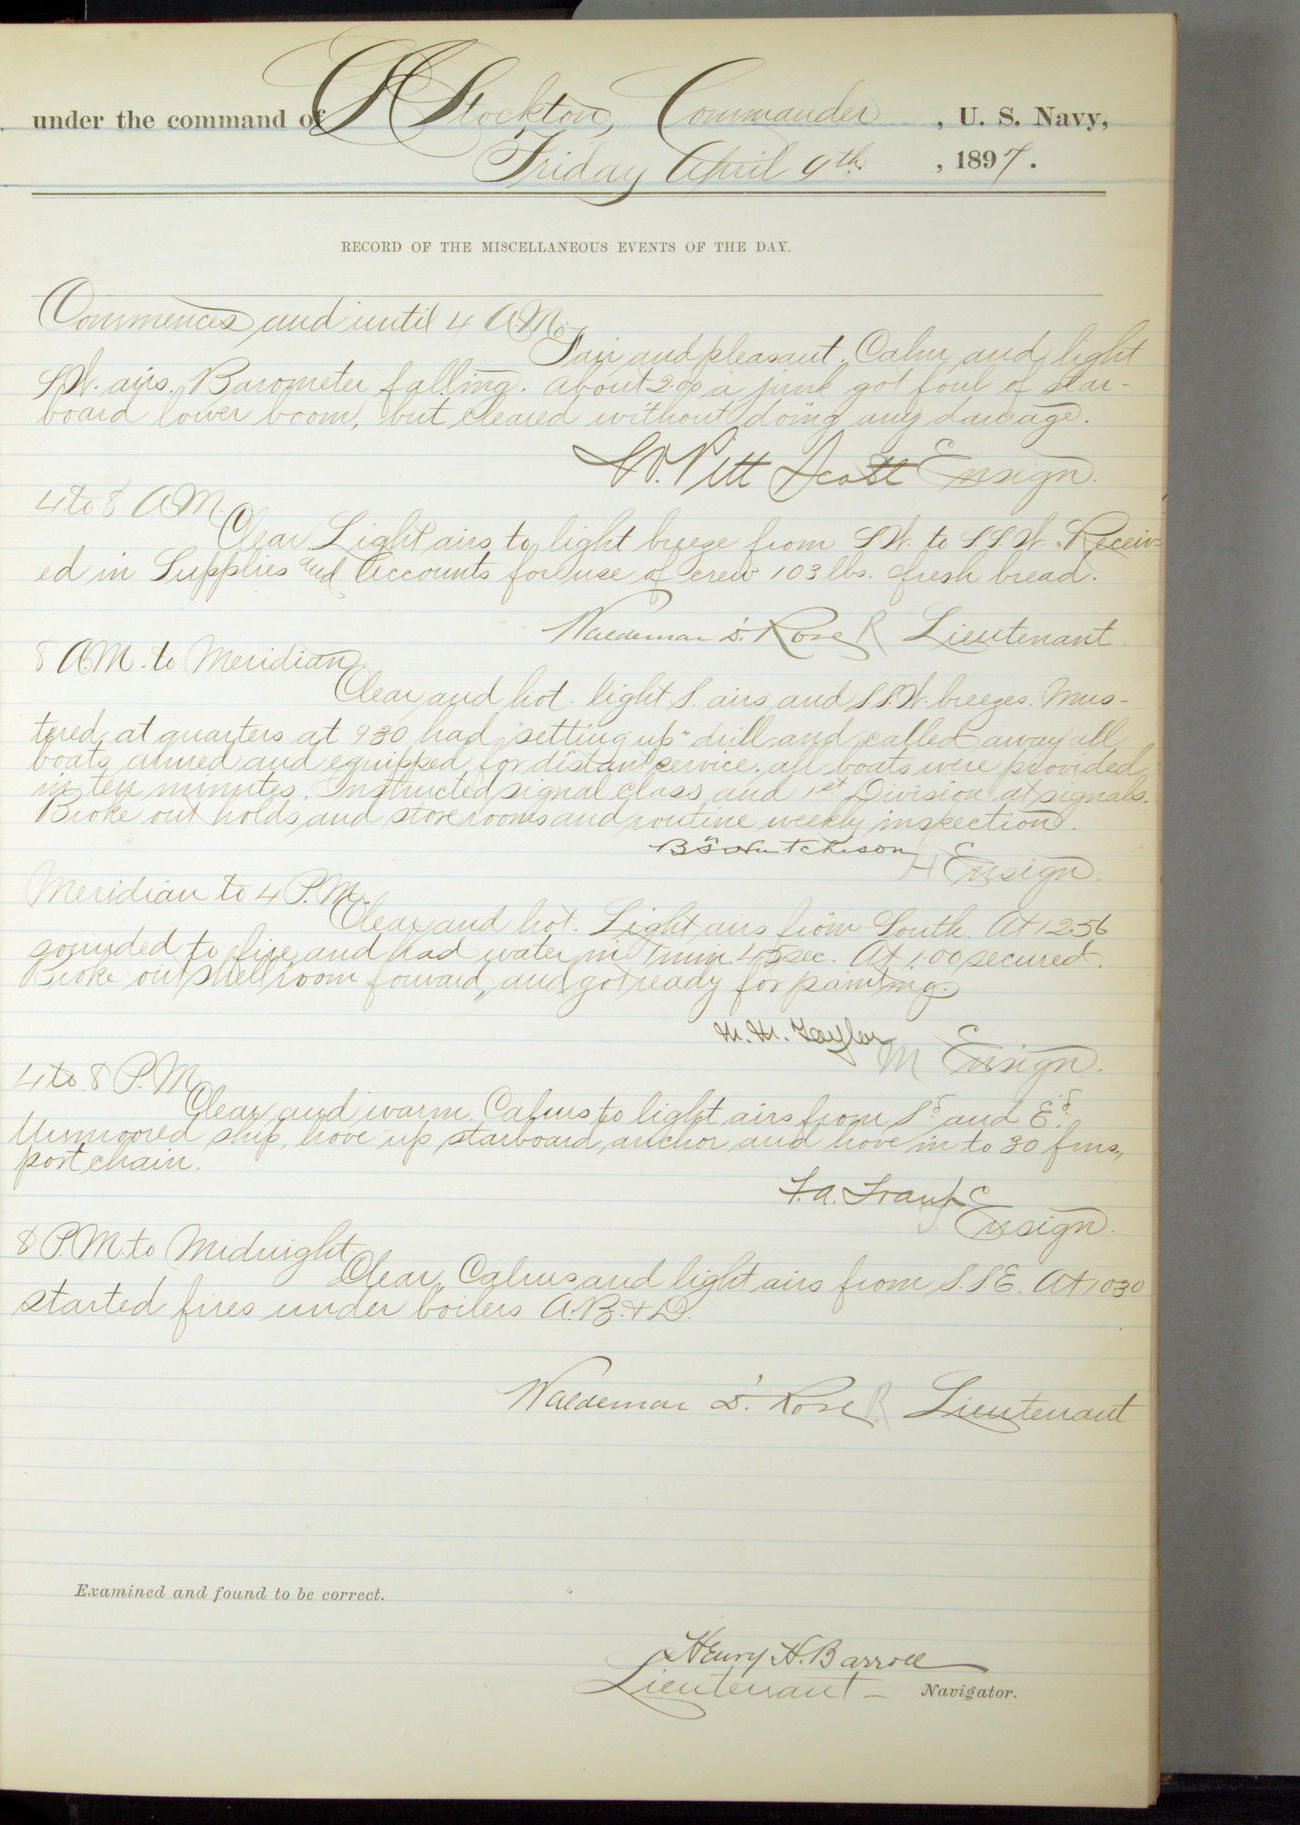 under the command of Stockton, Commander, U. S. Navy,
Friday April 9th, 1897.
RECORD OF THE MISCELLANEOUS EVENTS OF THE DAY.
Commences and until 4 A.M.
Fair and pleasant. Calm and light
S.W. airs. Barometer falling. About 2.00 a junk got foul of star-
board lower boom, but cleared without doing any damage.
W. Pitt Scott Ensign.
4 to 8 A.M.
Clear. Light airs to light breeze from S.W. to S.S.W. Receiv-
ed in Supplies and Accounts for use of crew 103 lbs. fresh bread.
Waldemar D. Rose R Lieutenant
8 A.M. to Meridian
Clear and hot. light S. airs and S.S.W. breezes. Mus-
tered at quarters at 930 had "setting up" drill and called away all
boats armed and equipped for distant service. all boats were provided
in ten minutes. Instructed signal class and 1st Division at signals.
Broke out holds and store rooms and routine weekly inspection.
Hutchison H Ensign.
Meridian to 4 P.M.
Clear and hot. Light airs from South. At 12.56
sounded to fire and had water in 1 min. 45 sec. At 1.00 secured.
Broke out shell room forward, and got ready for painting.
M. M. Taylor M Ensign.
4 to 8 P.M.
Clear and warm. Calms to light airs from Sd and Ed.
Unmoored ship, hove up starboard anchor and hove in to 30 fms,
port chain.
F. A. Traut Ensign.
8 P.M. to Midnight
Clear, Calms and light airs from S.S.E. At 1030
started fires under boilers A.B. & D.
Waldemar D. Rose R Lieutenant
Examined and found to be correct.
Henry H. Barroll
Lieutenant — Navigator.